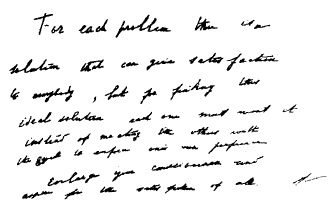 For each problem there is a
solution that can give satisfaction
to everybody, but for finding this
ideal solution each one must want it
instead of meeting the others with
the to enforce one's own preference
Enlarge your consciousness and
aspire for the satisfaction of all.